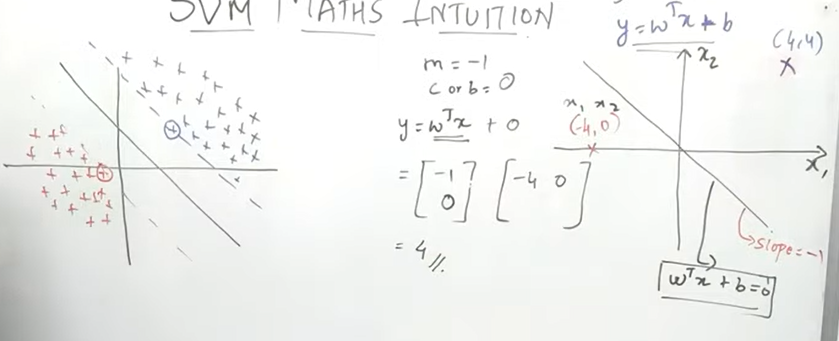 SVM MATHS INTUITION
m = -1
c or b = 0
y = wᵀx + 0
= [-1 0] [-4 0]
= 4 //.
y = wᵀx + b
(4,4)
x₂
x₁ x₂
(-4,0)
x₁
slope = -1
wᵀx + b = 0